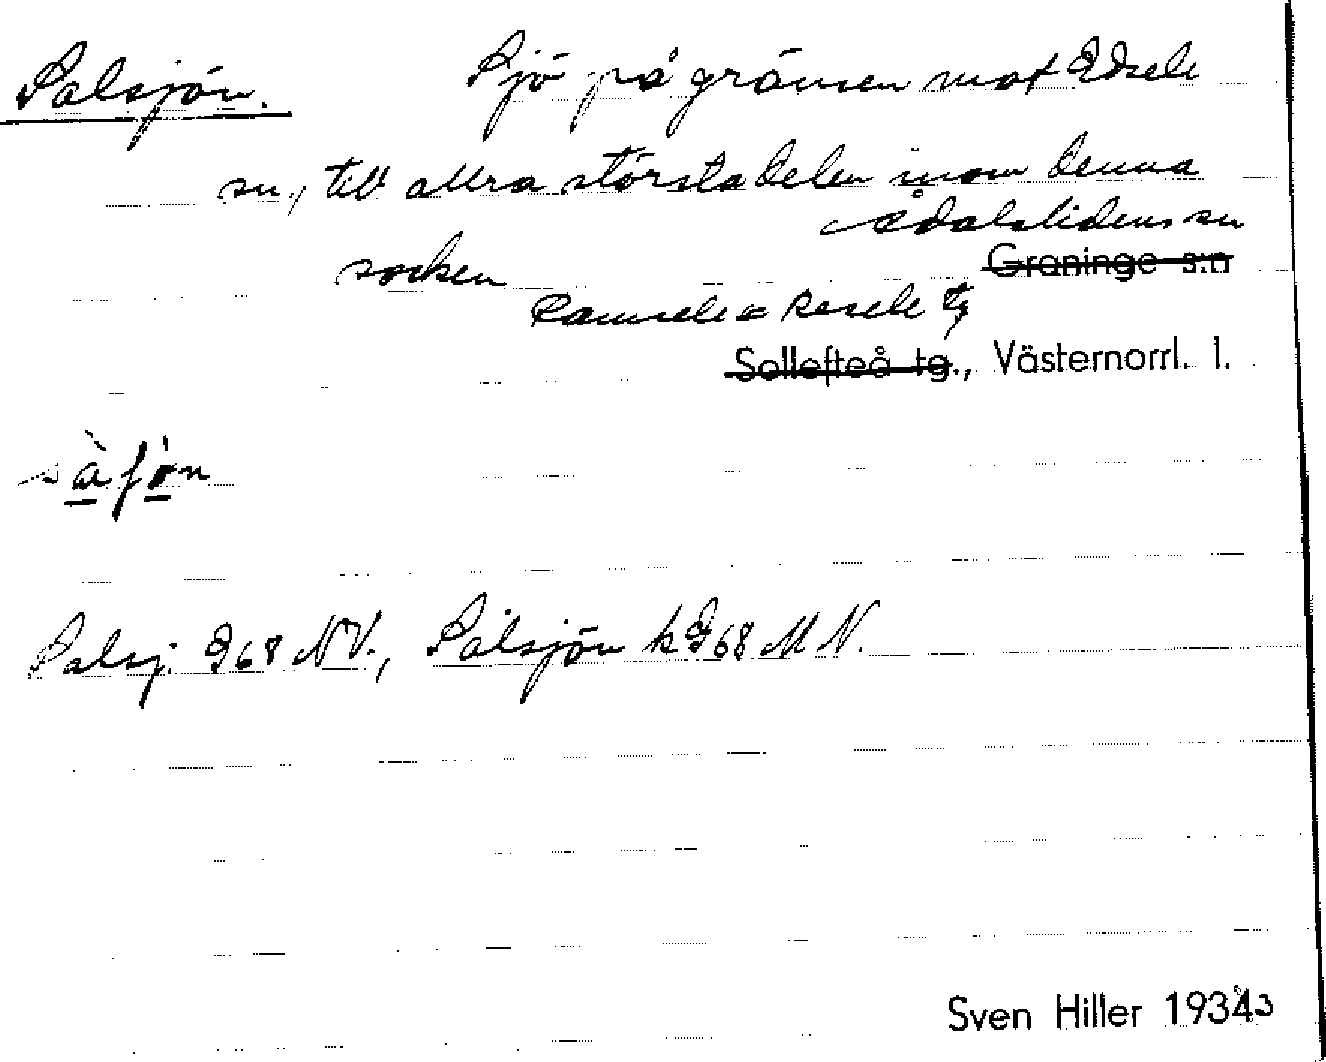 Salsjön. Sjö på gränsen mot Edsele
sn, till allra största delen inom denna
socken
Ådalslidens sn
Graninge s:n
Ramsele o Resele tg
Sollefteå tg., Västernorrl. l.
Salsj. G68 NV., Salsjön k G68 M N.
Sven Hiller 1934